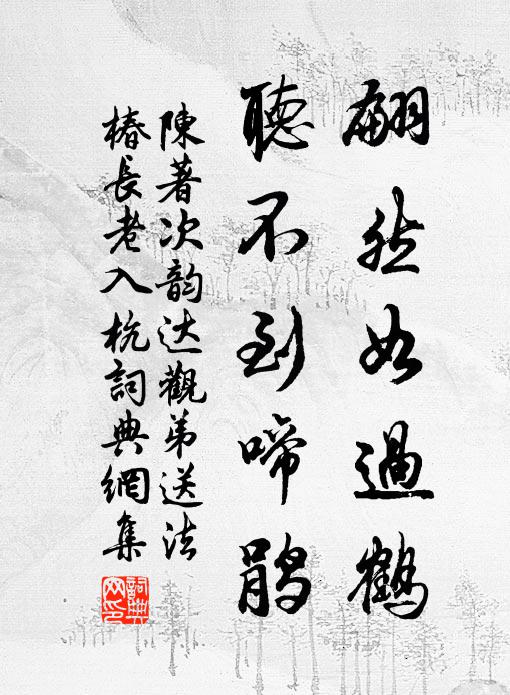 翩然如過鶴
聽不到啼鹃
陳著次韵达觀弟送法
椿長老入杭詞典網集